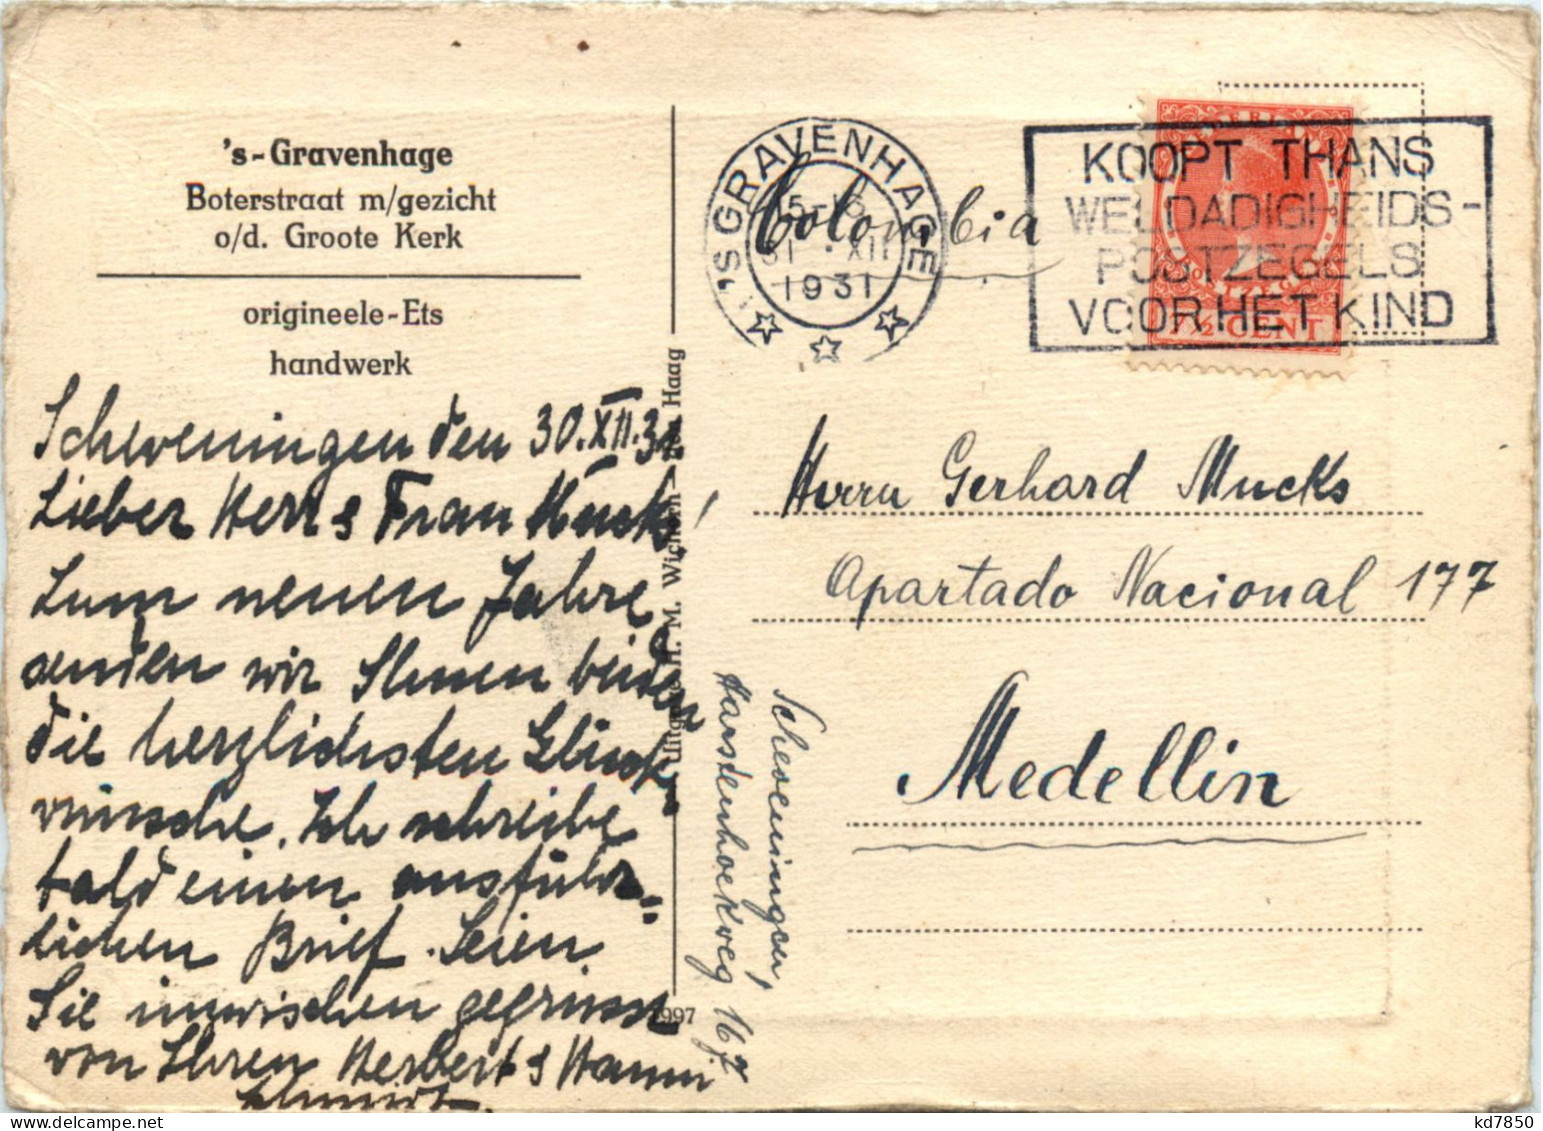 's-Gravenhage
Boterstraat m/gezicht
o/d. Groote Kerk
origineele-Ets
handwerk
Scheveningen den 30.XII.31.
Lieber Herr & Frau Mucks!
Zum neuen Jahre
senden wir Ihnen beiden
die herzlichsten Glück-
wünsche. Ich schreibe
bald einen ausführ=
lichen Brief. Seien
Sie inzwischen gegrüsst
von Ihren Herbert & Hanni
Schmidt.
M. Haag
997
'S GRAVENHAGE
15-16
31 · XII
1931
Colombia
KOOPT THANS
WELDADIGHEIDS-
POSTZEGELS
VOOR HET KIND
7½ CENT
Herrn Gerhard Mucks
Apartado Nacional 177
Medellin
Scheveningen,
Harstenhoekweg 167
kd7850